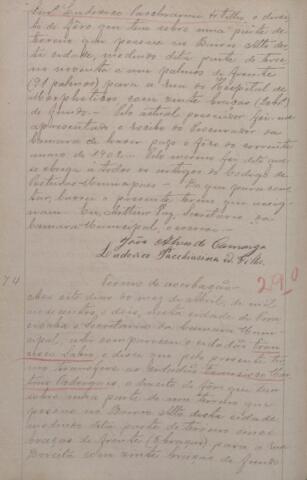 Ludovico Pacchiarini & Filho, o direito
de fôro que tem sobre uma parte de
terreno que possue no Bairro Alto des-
ta cidade, medindo dita parte de terre-
no noventa e um palmos de frente
(91 palmos) para a rua do Hospital de
Morpheticos com vinte braças (20 br.)
de fundo. Pelo actual possuidor foi-me
apresentado o recibo do Procurador da
Camara de haver pago o fôro do corrente
anno de 1902. Pelo mesmo foi dito que
se obriga a todos os artigos do Codigo de
Posturas Municipaes. Do que para cons-
tar, lavrei o presente termo que assig-
nam. Eu, Arthur Vaz, Secretario da
Camara Municipal, o escrevi.
João Alves de Camargo
Ludovico Pacchiarini & Filho
74
290
Termo de
Aos sete dias do mez de Abril, de mil
novecentos e dois, nesta cidade de Pira-
cicaba e Secretaria da Camara Muni-
cipal, ahi compareceu o cidadão Fran-
cisco e disse que pelo presente ter-
mo transferia ao cidadão Francisco Mar-
tins o direito de fôro que tem
sobre uma parte de um terreno que
possue no Bairro Alto desta cidade
medindo dita parte de terreno cinco
braças de frente (5 braças) para a rua
com vinte braças de fundo